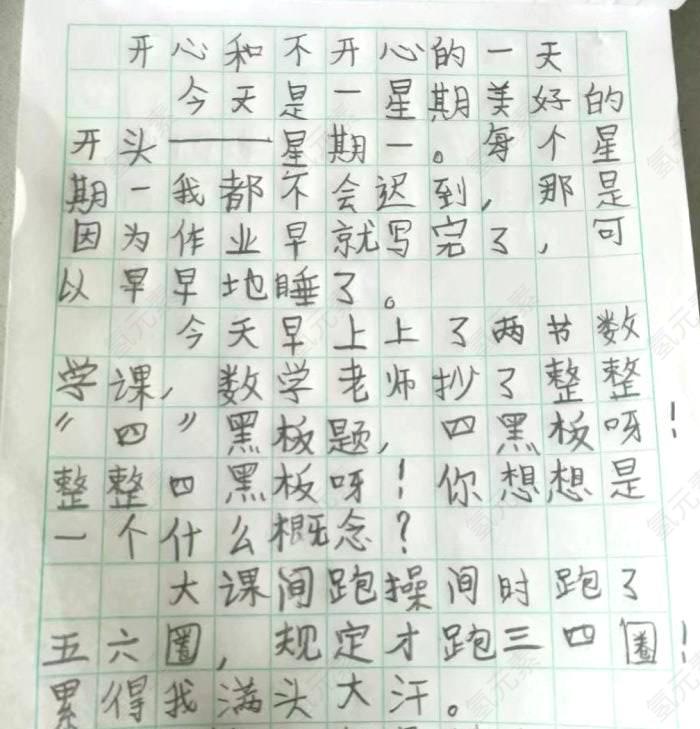 开心和不开心的一天
今天是一星期美好的
开头——星期一。每个星
期一我都不会迟到，那是
因为作业早就写完了，可
以早早地睡了。
今天早上上了两节数
学课，数学老师抄了整整
“四”黑板题，四黑板呀！
整整四黑板呀！你想想是
一个什么概念？
大课间跑操间时跑了
五六圈，规定才跑三四圈！
累得我满头大汗。